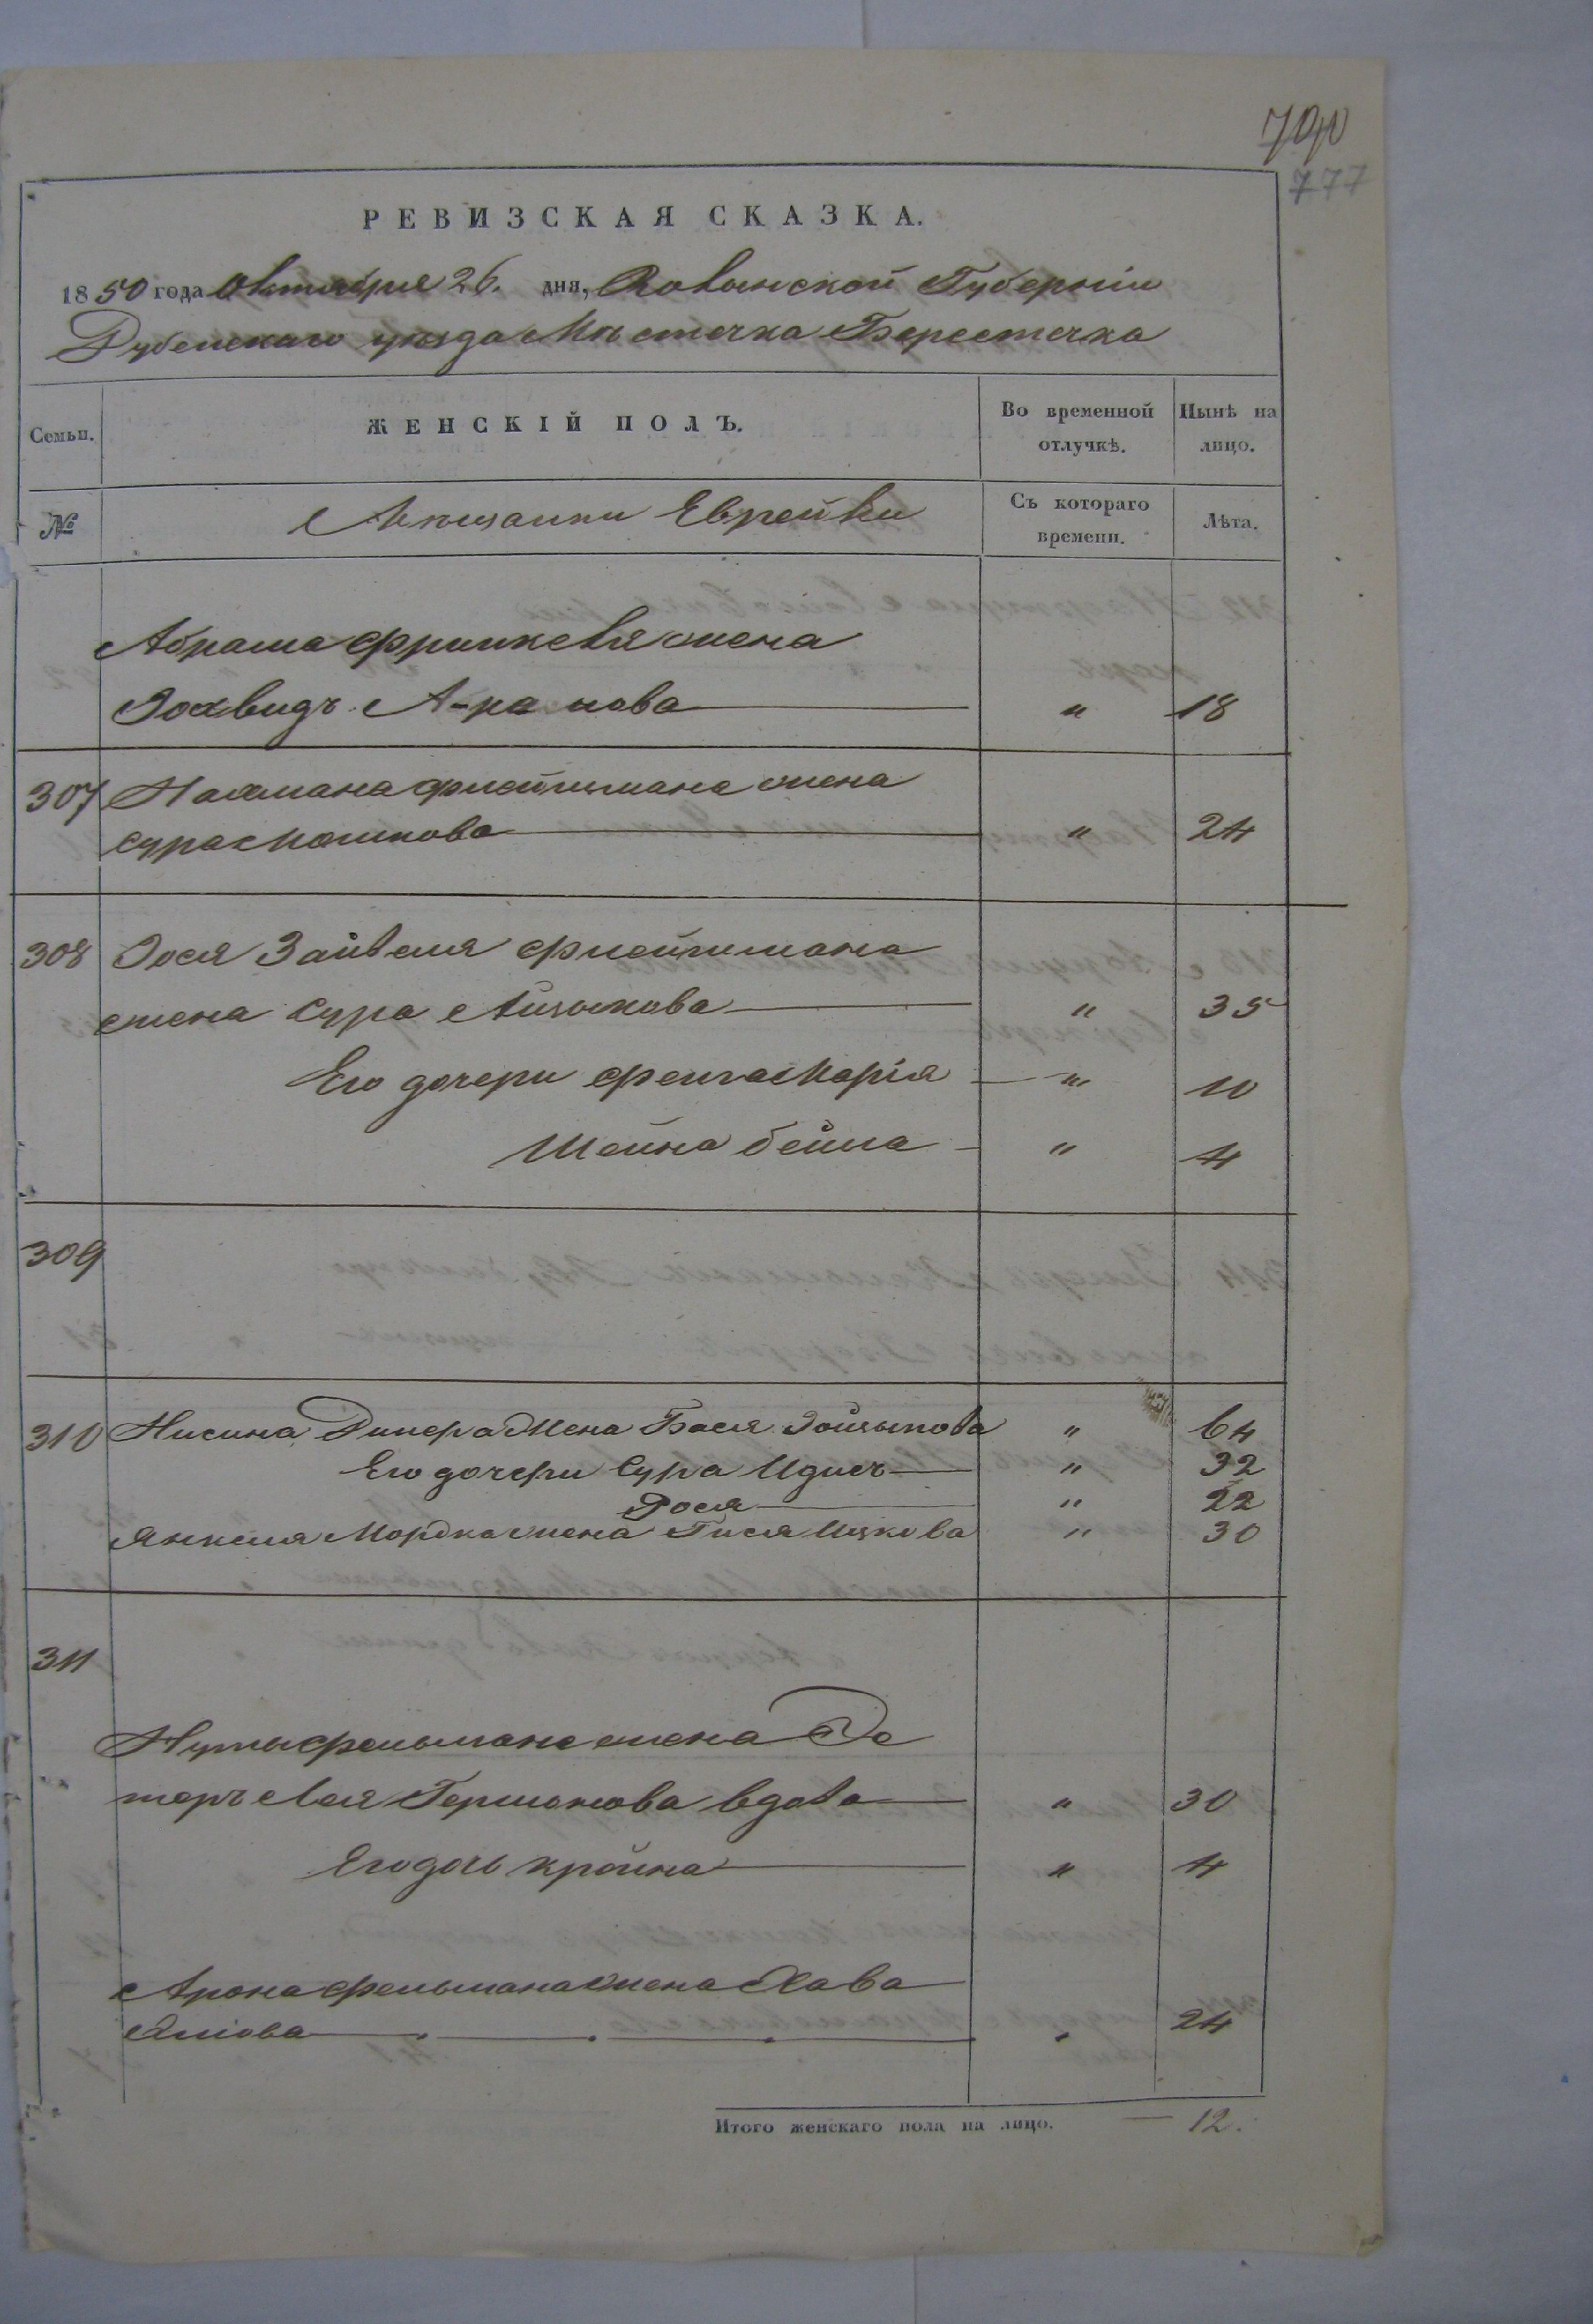 790
777
РЕВИЗСКАЯ СКАЗКА.
1850 года Октября 26. дня, Волынской Губерніи
Дубенскаго уѣзда Мѣстечка Берестечка
Семьи.
ЖЕНСКІЙ ПОЛЪ.
Во временной отлучкѣ.
Нынѣ на лицо.
№
Мѣщанки Еврейки
Съ котораго времени.
Лѣта.
Абрама жена
А-ронова " 18
307 Нахмана Флейшмана жена
Сура Мошкова " 24
308 Іося Зайвеля Флейшмана
жена Сура Айзыкова " 35
Его дочери Фейга Марія " 10
Шейна бейла " 4
309
310 Нисина жена Бася " 64
Его дочери Сура Идись " 32
Рося " 22
Янкеля Мордка жена Гися Ицкова " 30
311
Нуты Фельмана жена Эс
теръ Лея Гершонова вдова " 30
Его дочь Кройна " 4
Арона Фельмана жена Хава
24
Итого женскаго пола на лицо. — 12.